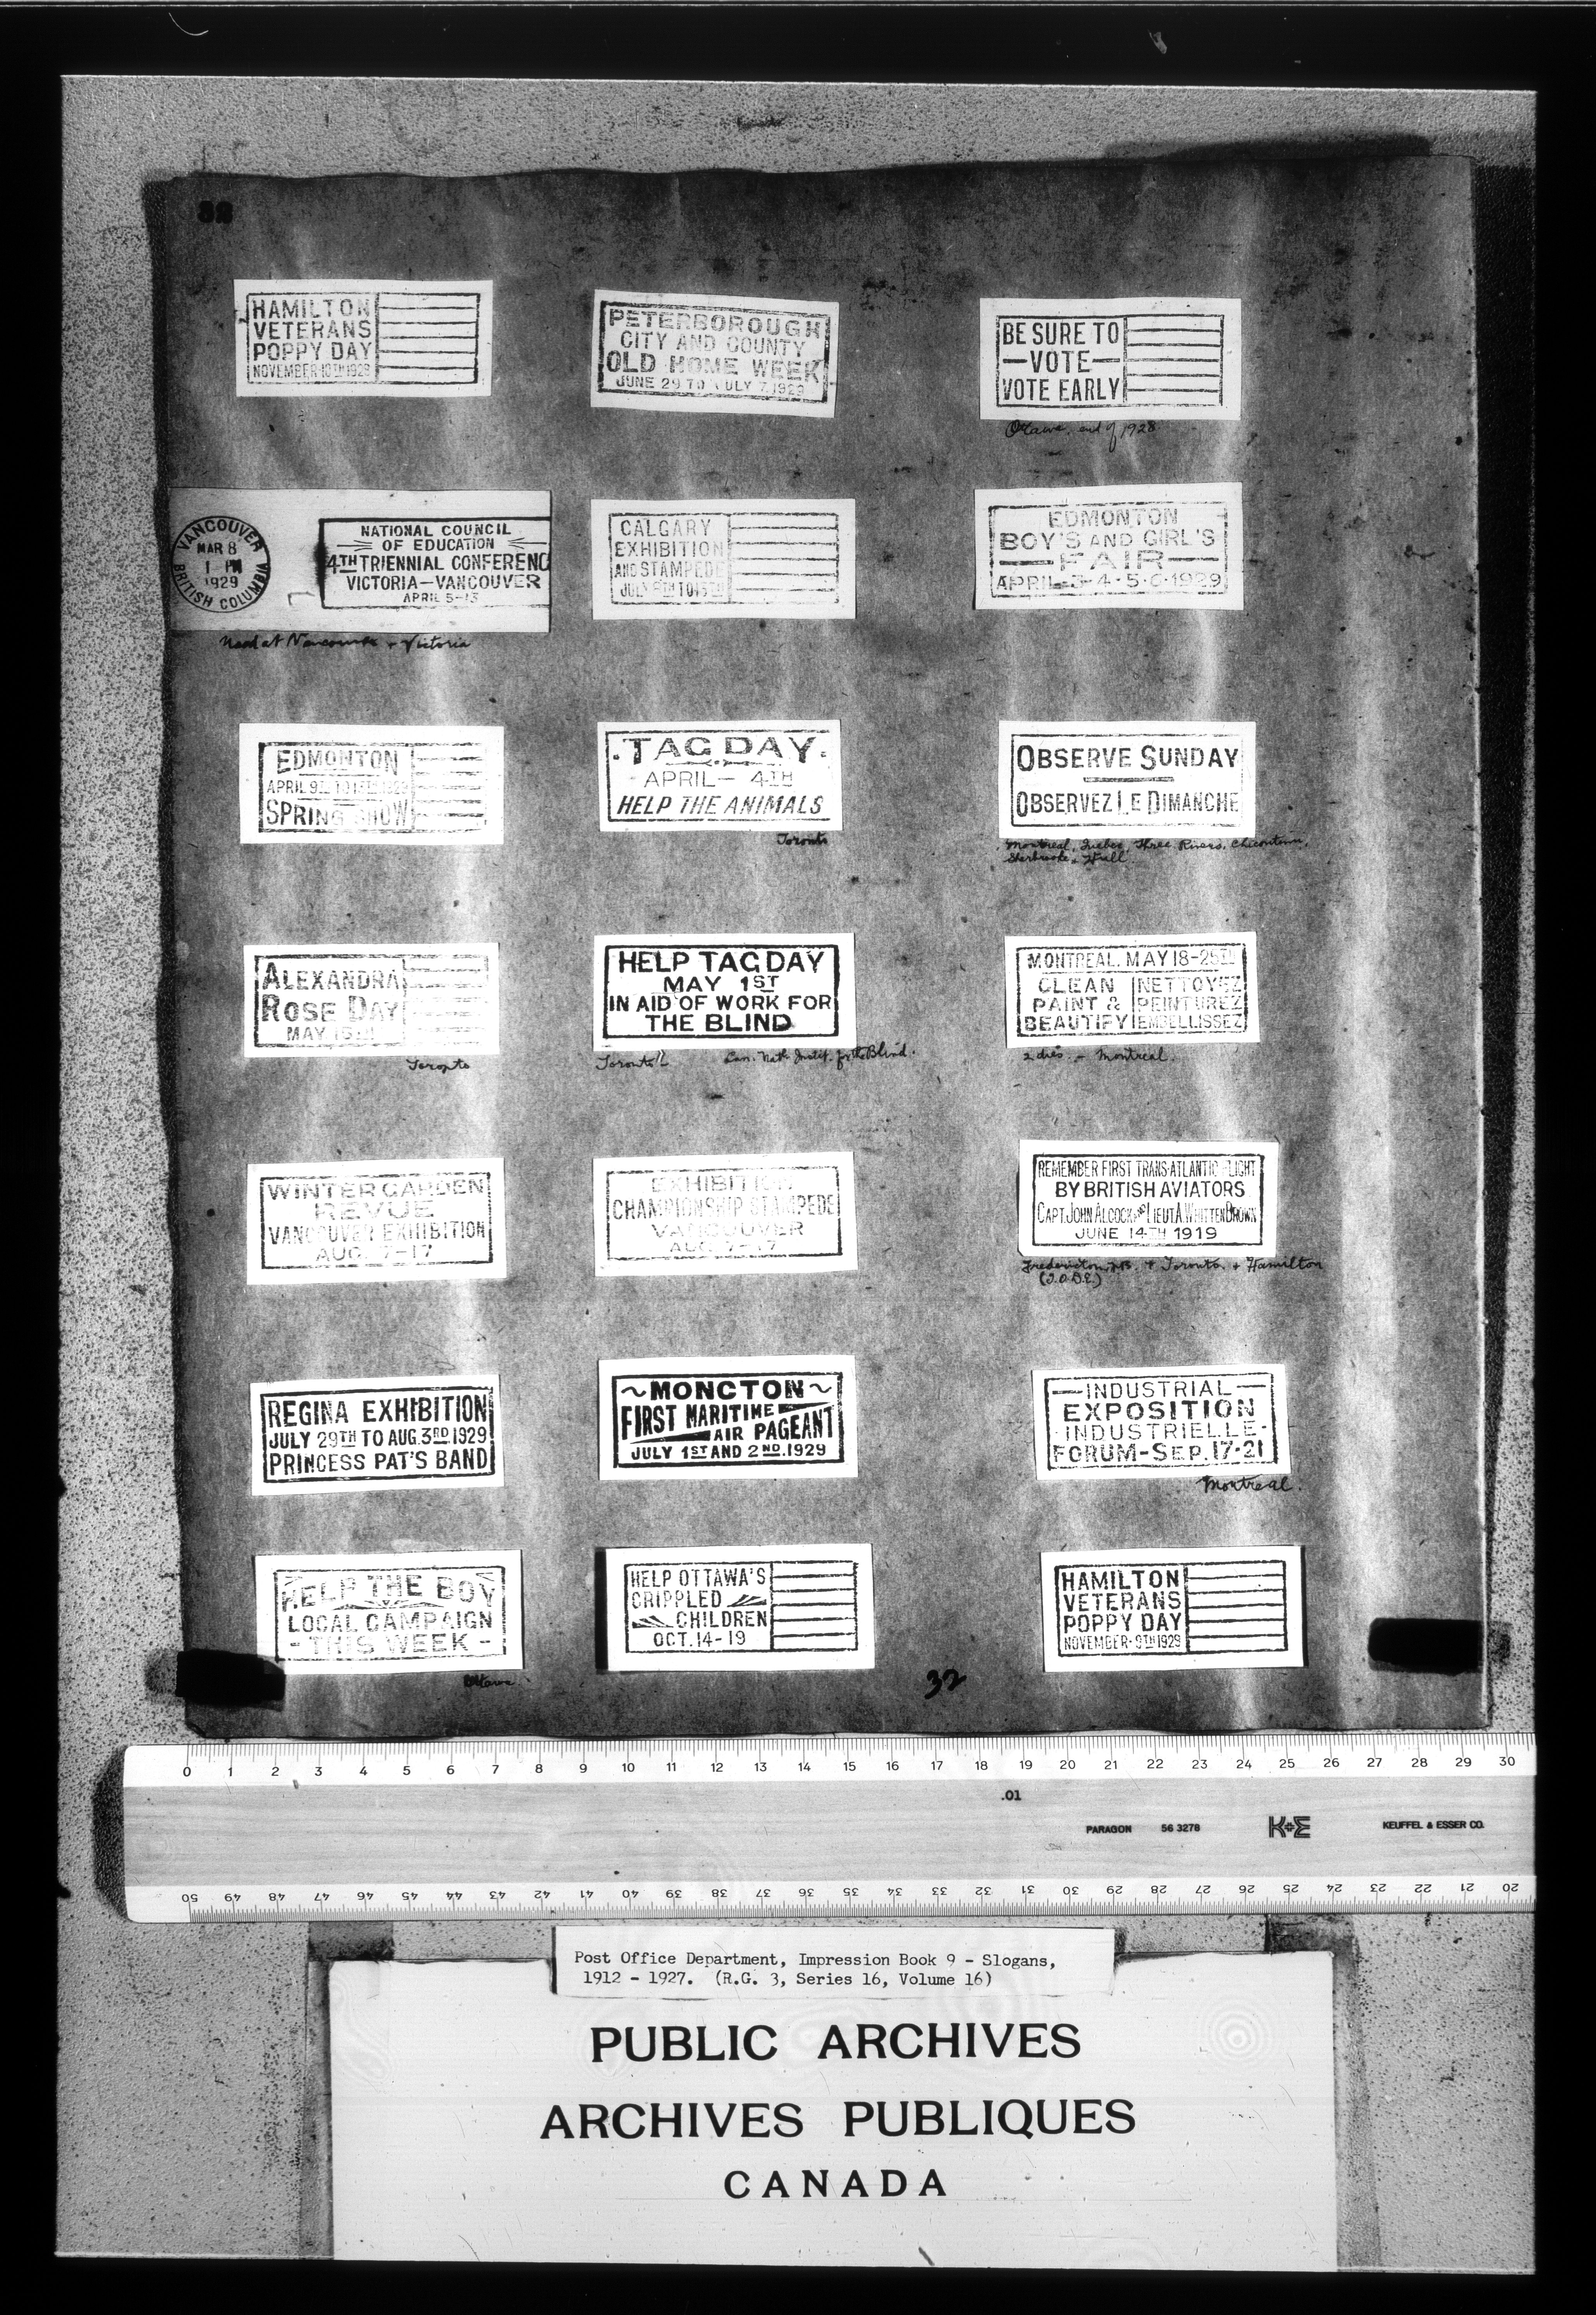 32
HAMILTON
VETERANS
POPPY DAY
NOVEMBER·10TH 1928
PETERBOROUGH
CITY AND COUNTY
OLD HOME WEEK
JUNE 29 TO JULY 7, 1929
BE SURE TO
—VOTE—
VOTE EARLY
Ottawa, end of 1928
VANCOUVER
MAR 8
1 PM
1929
BRITISH COLUMBIA
NATIONAL COUNCIL
OF EDUCATION
4TH TRIENNIAL CONFERENC
VICTORIA—VANCOUVER
APRIL 5-13
Used at Vancouver + Victoria
CALGARY
EXHIBITION
AND STAMPEDE
JULY
EDMONTON
BOY'S AND GIRL'S
—FAIR—
APRIL-3-4-5-6-1929
EDMONTON
APRIL 9TH TO
SPRING SHOW
.TAG DAY.
APRIL — 4TH
HELP THE ANIMALS
Toronto
OBSERVE SUNDAY
OBSERVEZ LE DIMANCHE
Montreal, Quebec, Three Rivers, Chicoutimi,
Sherbrooke, Hull
ALEXANDRA
ROSE DAY
MAY
Toronto
HELP TAG DAY
MAY 1ST
IN AID OF WORK FOR
THE BLIND
Toronto Can. Natl. Instit. for the Blind.
MONTREAL. MAY 18-25TH
CLEAN NETTOYEZ
PAINT & PEINTUREZ
BEAUTIFY EMBELLISSEZ
2 dies - Montreal.
WINTER GARDEN
REVUE
VANCOUVER EXHIBITION
AUG. 7-17
EXHIBITION
CHAMPIONSHIP STAMPEDE
VANCOUVER
AUG. 7-17
REMEMBER FIRST TRANS-ATLANTIC FLIGHT
BY BRITISH AVIATORS
CAPT. JOHN ALCOCK AND LIEUT. A. WHITTEN BROWN
JUNE 14TH 1919
Fredericton, NB. + Toronto + Hamilton
(I.O.D.E.)
REGINA EXHIBITION
JULY 29TH TO AUG. 3RD 1929
PRINCESS PAT'S BAND
~MONCTON~
FIRST MARITIME
AIR PAGEANT
JULY 1ST AND 2ND. 1929
—INDUSTRIAL—
EXPOSITION
·INDUSTRIELLE·
FORUM-SEP. 17-21
Montreal.
HELP THE BOY
LOCAL CAMPAIGN
- THIS WEEK -
Ottawa
HELP OTTAWA'S
CRIPPLED
CHILDREN
OCT. 14-19
HAMILTON
VETERANS
POPPY DAY
NOVEMBER·9TH 1929
32
0 1 2 3 4 5 6 7 8 9 10 11 12 13 14 15 16 17 18 19 20 21 22 23 24 25 26 27 28 29 30
.01
PARAGON 56 3278 K+E KEUFFEL & ESSER CO.
50 49 48 47 46 45 44 43 42 41 40 39 38 37 36 35 34 33 32 31 30 29 28 27 26 25 24 23 22 21 20
Post Office Department, Impression Book 9 - Slogans,
1912 - 1927. (R.G. 3, Series 16, Volume 16)
PUBLIC ARCHIVES
ARCHIVES PUBLIQUES
CANADA